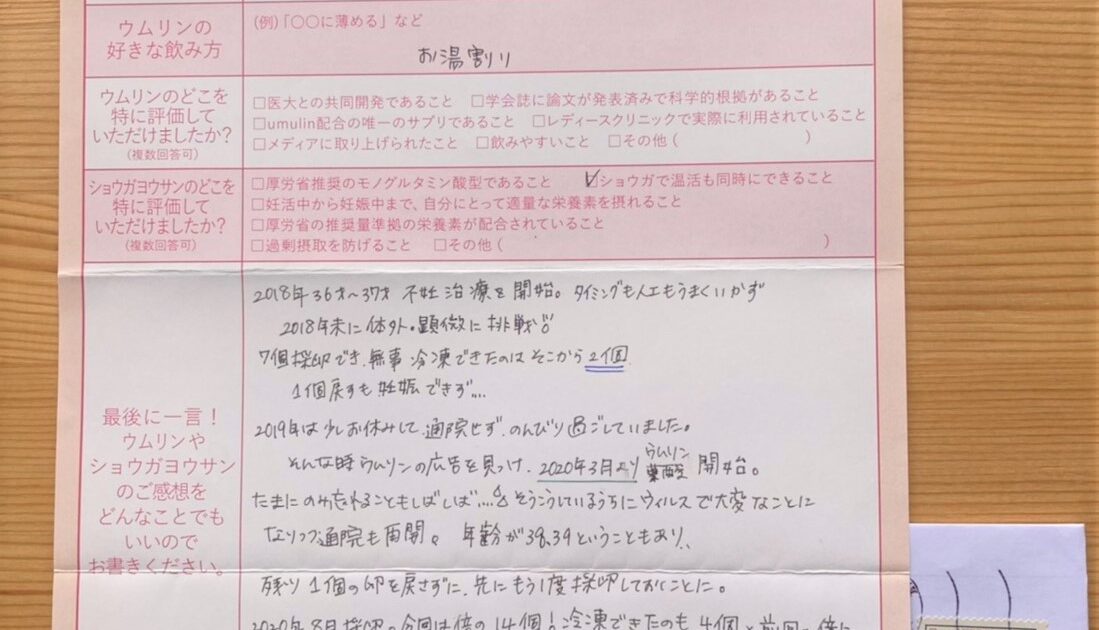 ウムリンの
好きな飲み方
(例)「〇〇に薄める」など
お湯割り
ウムリンのどこを
特に評価して
いただけましたか?
(複数回答可)
□医大との共同開発であること □学会誌に論文が発表済みで科学的根拠があること
□umulin配合の唯一のサプリであること □レディースクリニックで実際に利用されていること
□メディアに取り上げられたこと □飲みやすいこと □その他 ( )
ショウガヨウサンのどこを
特に評価して
いただけましたか?
(複数回答可)
□厚労省推奨のモノグルタミン酸型であること ☑ショウガで温活も同時にできること
□妊活中から妊娠中まで、自分にとって適量な栄養素を摂れること
□厚労省の推奨量準拠の栄養素が配合されていること
□過剰摂取を防げること □その他 ( )
最後に一言!
ウムリンや
ショウガヨウサン
のご感想を
どんなことでも
いいので
お書きください。
2018年36才〜37才 不妊治療を開始。タイミングも人工もうまくいかず
2018年末に体外・顕微に挑戦!!
7個採卵でき、無事冷凍できたのはそこから2個
1個戻すも妊娠できず…
2019年は少しお休みして、通院せず、のんびり過ごしていました。
そんな時ウムリンの広告を見つけ、2020年3月よりウムリン開始。
たまにのみ忘れることもしばしば…。そうこうしているうちにウィルスで大変なことに
なりつつ通院も再開。年齢が38、39ということもあり、
残り1個の卵を戻さずに、先にもう1度採卵しておくことに。
2020年8月採卵。今回は倍の14個!冷凍できたのも4個と前回の倍に